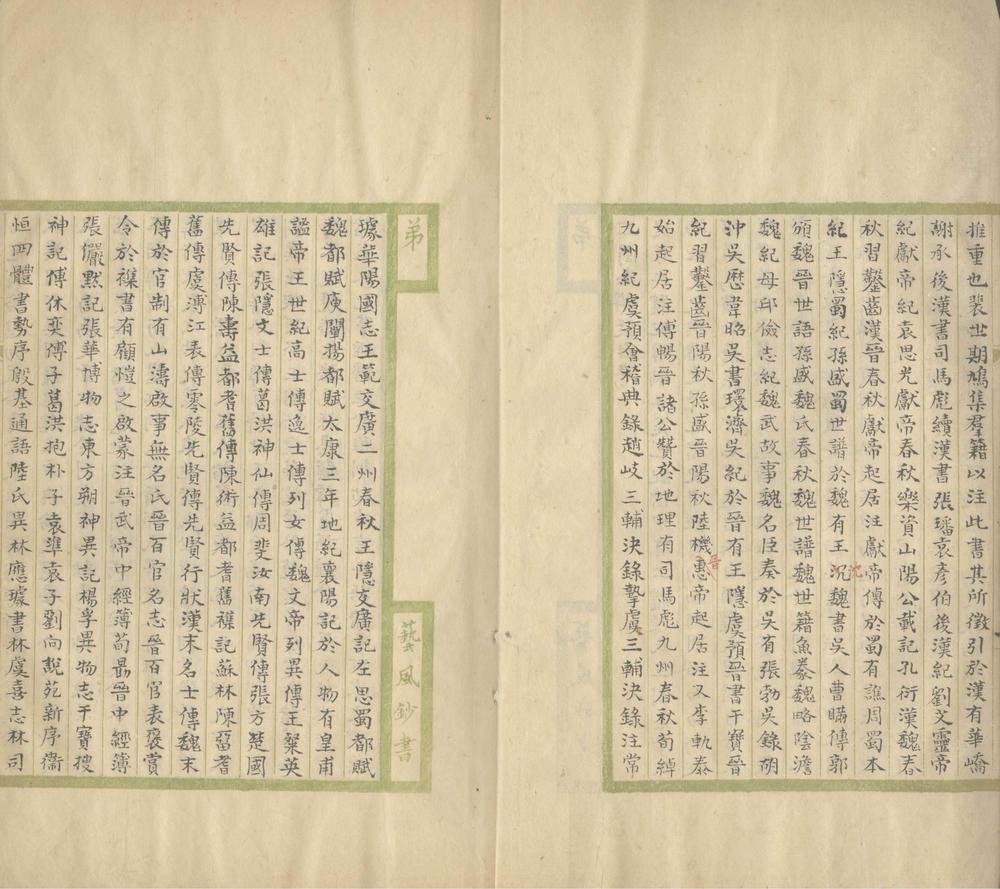 推重也裴世期鳩集羣籍以注此書其所徵引於漢有華嶠
謝承後漢書司馬彪續漢書張璠袁彥伯後漢紀劉文靈帝
紀獻帝紀袁思光獻帝春秋樂資山陽公載記孔衍漢魏春
秋習鑿齒漢晉春秋獻帝起居注獻帝傳於蜀有譙周蜀本
紀王隱蜀紀孫盛蜀世譜於魏有王沉沈魏書吳人曹瞞傳郭
頒魏晉世語孫盛魏氏春秋魏世譜魏世籍魚豢魏略陰澹
魏紀母邱儉志紀魏武故事魏名臣奏於吳有張勃吳錄胡
沖吳歷韋昭吳書環濟吳紀於晉有王隱虞預晉書干寶晉
紀習鑿齒晉陽秋孫盛晉陽秋陸機晉惠帝起居注又李軌泰
始起居注傅暢晉諸公贊於地理有司馬彪九州春秋荀綽
九州紀虞預會稽典錄趙岐三輔決錄摯虞三輔決錄注常
弟
藝風鈔書
璩華陽國志王範交廣二州春秋王隱交廣記左思蜀都賦
魏都賦庾闡揚都賦太康三年地紀襄陽記於人物有皇甫
謐帝王世紀高士傳逸士傳列女傳魏文帝列異傳王粲英
雄記張隱文士傳葛洪神仙傳周斐汝南先賢傳張方楚國
先賢傳陳壽益都耆舊傳陳術益都耆舊襍記蘇林陳留耆
舊傳虞溥江表傳零陵先賢傳先賢行狀漢末名士傳魏末
傳於官制有山濤啟事無名氏晉百官名志晉百官表褒賞
令於襍書有顧愷之啟蒙注晉武帝中經簿荀勗晉中經簿
張儼默記張華博物志東方朔神異記楊孚異物志干寶搜
神記傅休奕傅子葛洪抱朴子袁準袁子劉向說苑新序衞
恒四體書勢序殷基通語陸氏異林應璩書林虞喜志林司